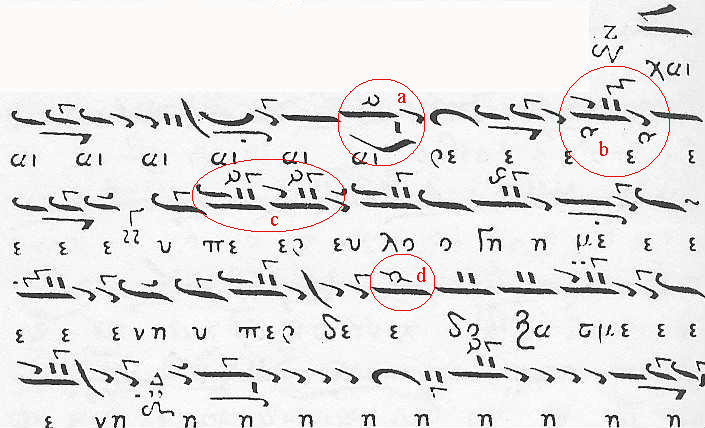 χαι
a b
αι αι αι αι αι αι ρε ε ε ε ε
c
ε ε ε υ πε ερ ευ λο ο γη η με ε ε
d
ε ε ε νη υ περ δε ε δο ξα σμε ε ε
ε νη η η η η η η η η η